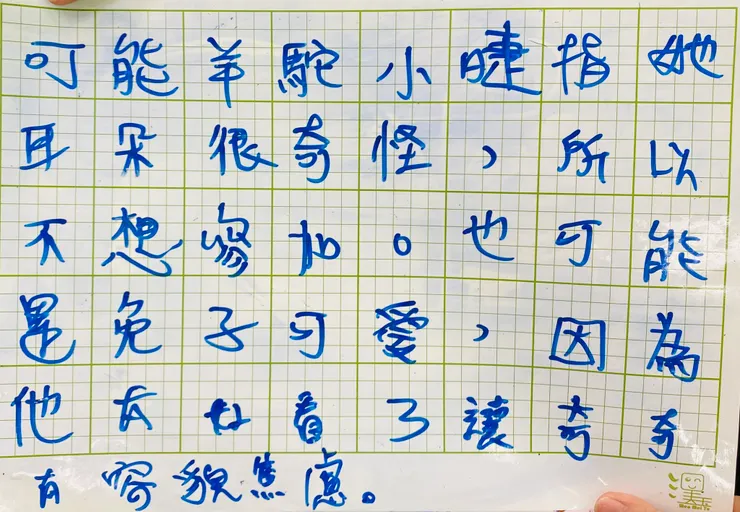 可能羊駝小睫指她
耳朵很奇怪，所以
不想參加。也可能
是兔子可愛，因為
他看了讓奇奇
有容貌焦慮。